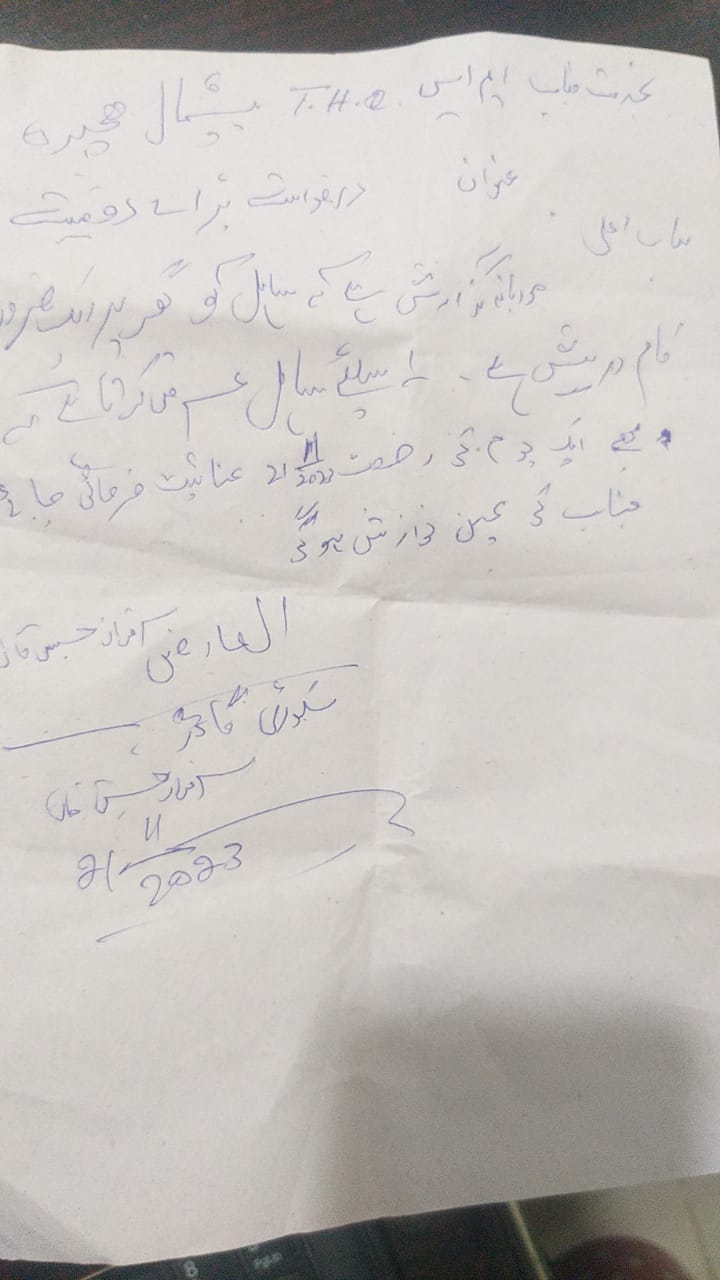 بخدمت جناب ایم ایس T.H.Q ہسپتال
عنوان درخواست برائے رخصت
جناب اعلی
مودبانہ گزارش ہے کہ سائل کو گھر پر ایک ضرور
کام درپیش ہے۔ اسلئے سائل عرض کرتا ہے کہ
مجھے ایک یوم کی رخصت 21/11/2023 عنائیت فرمائی جائے
جناب کی عین نوازش ہوگی
العارض سرفراز حسین
سکیورٹی گارڈ
سرفراز حسین خان
21/11/2023
8
PgUp